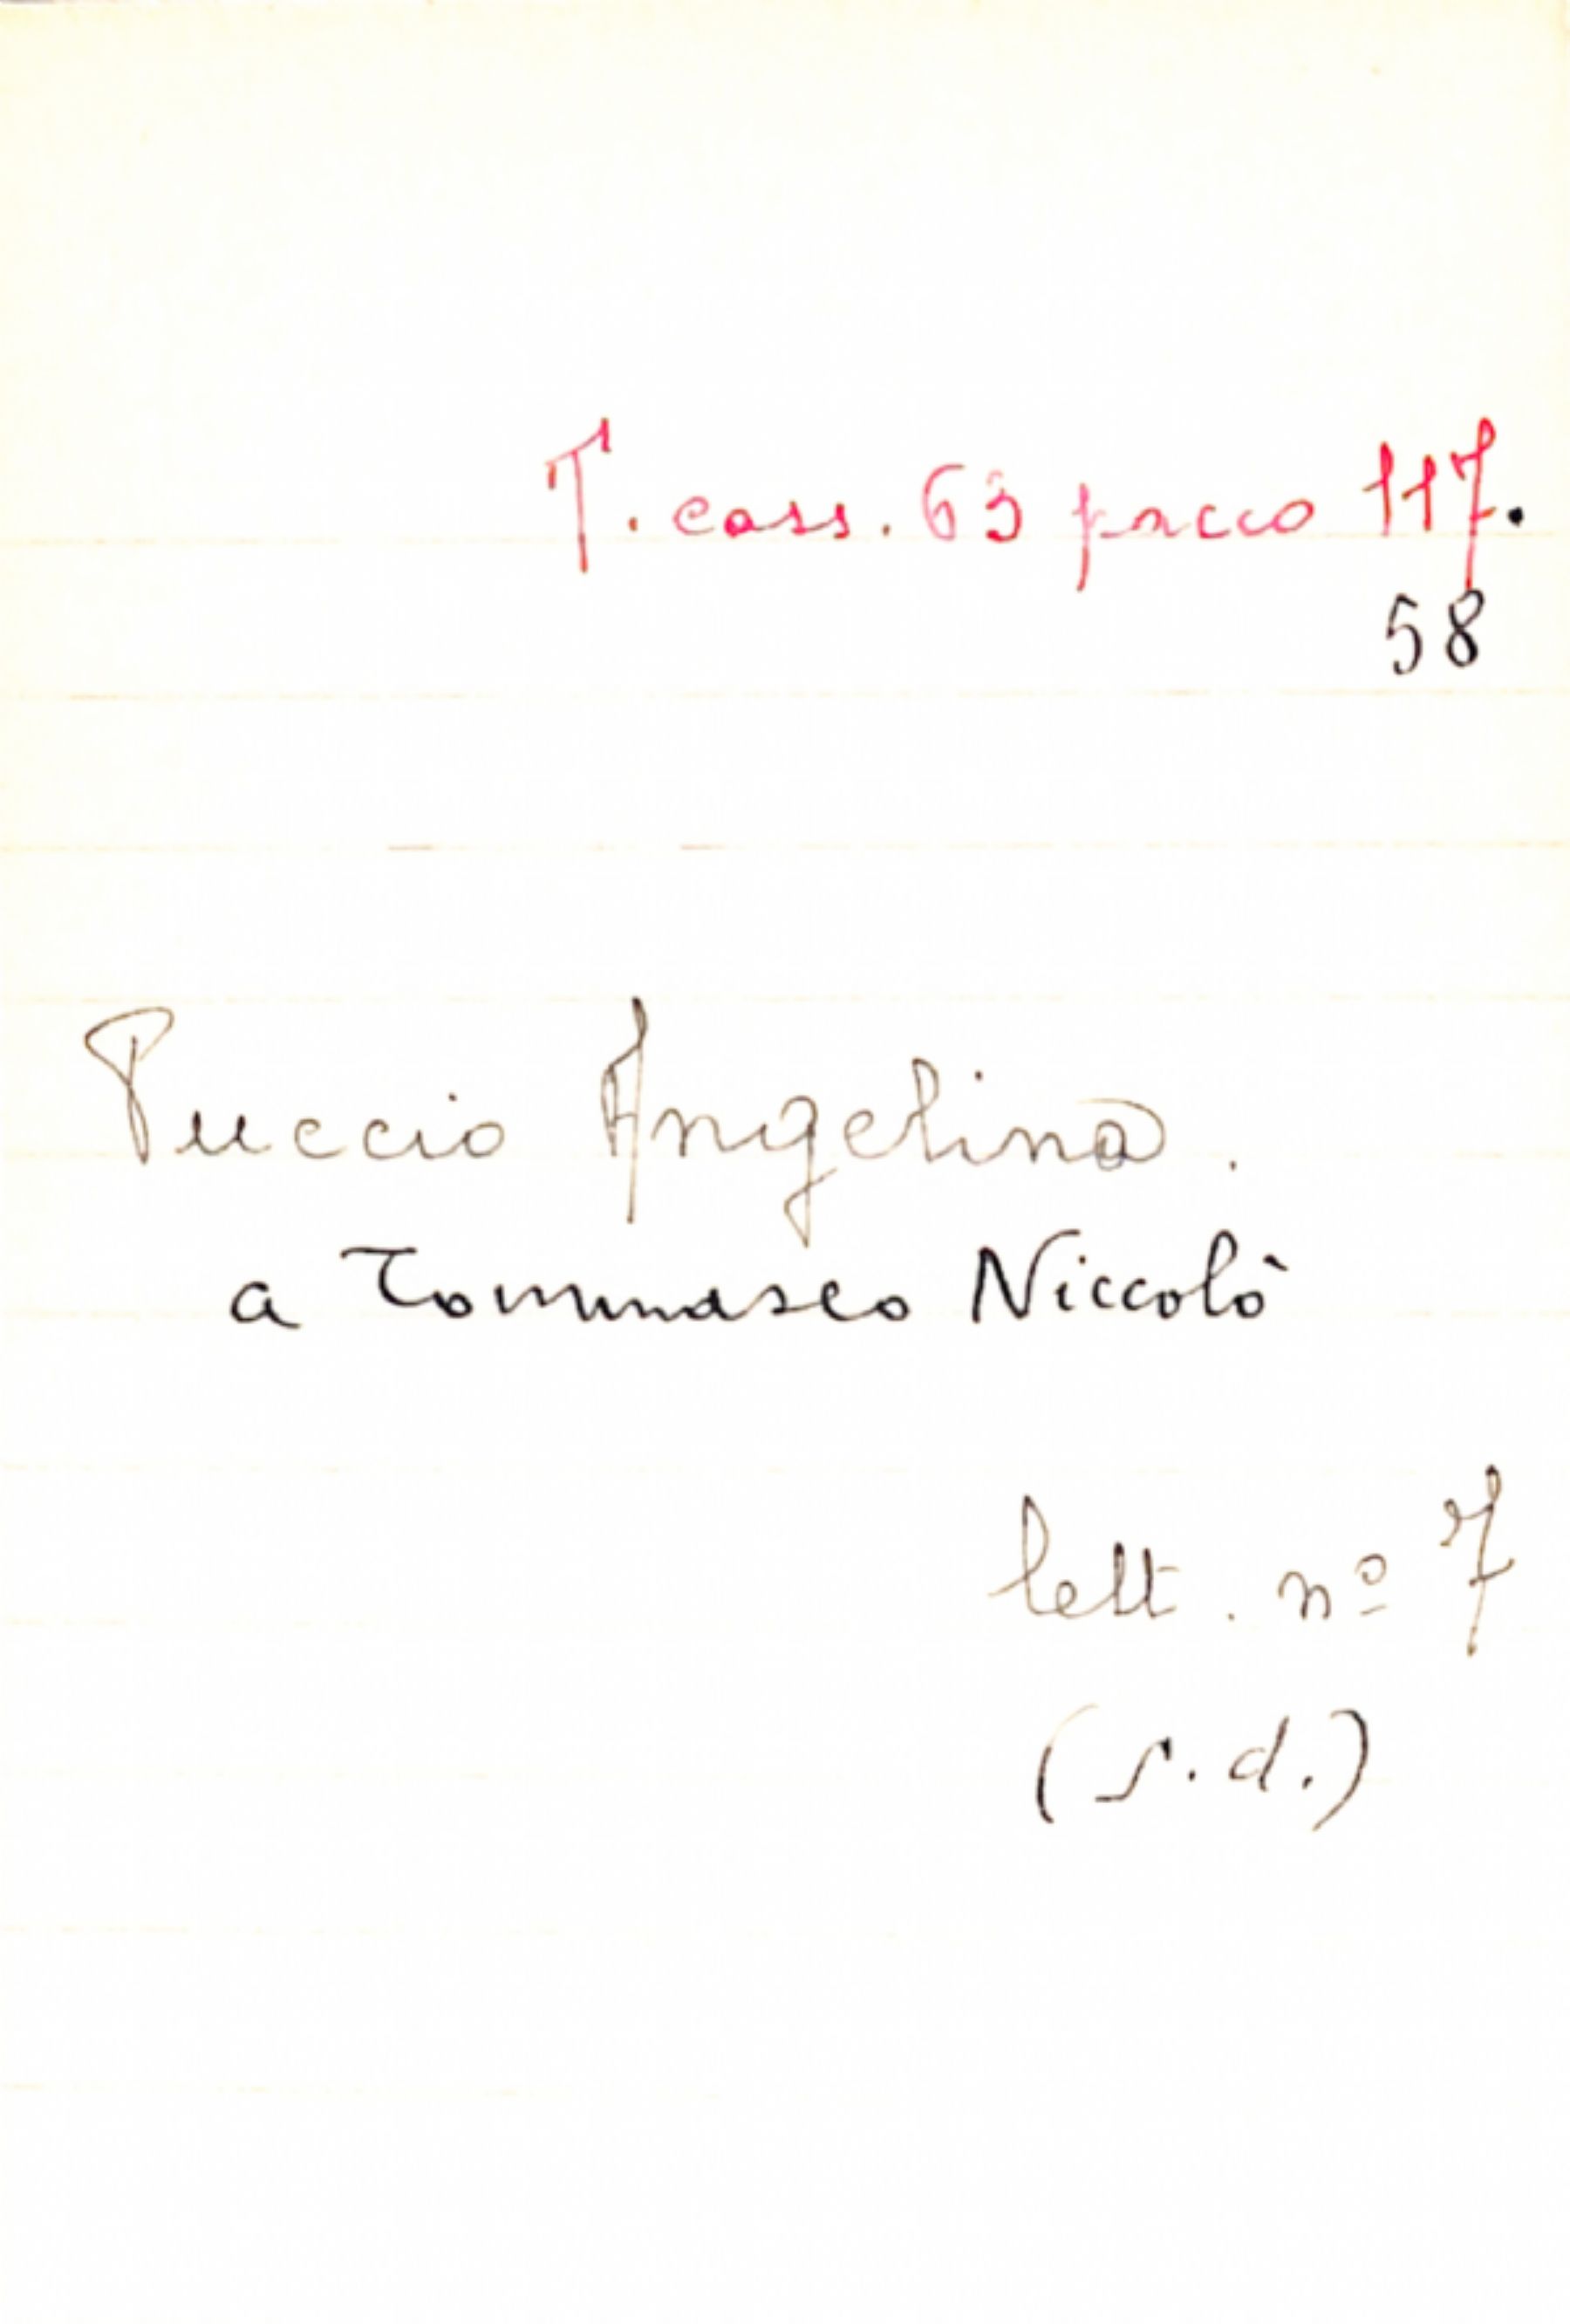 T. cass. 63 pacco 117.
58
Puccio Angelina.
a Tommaseo Niccolò
lett. nº 7
(s.d.)